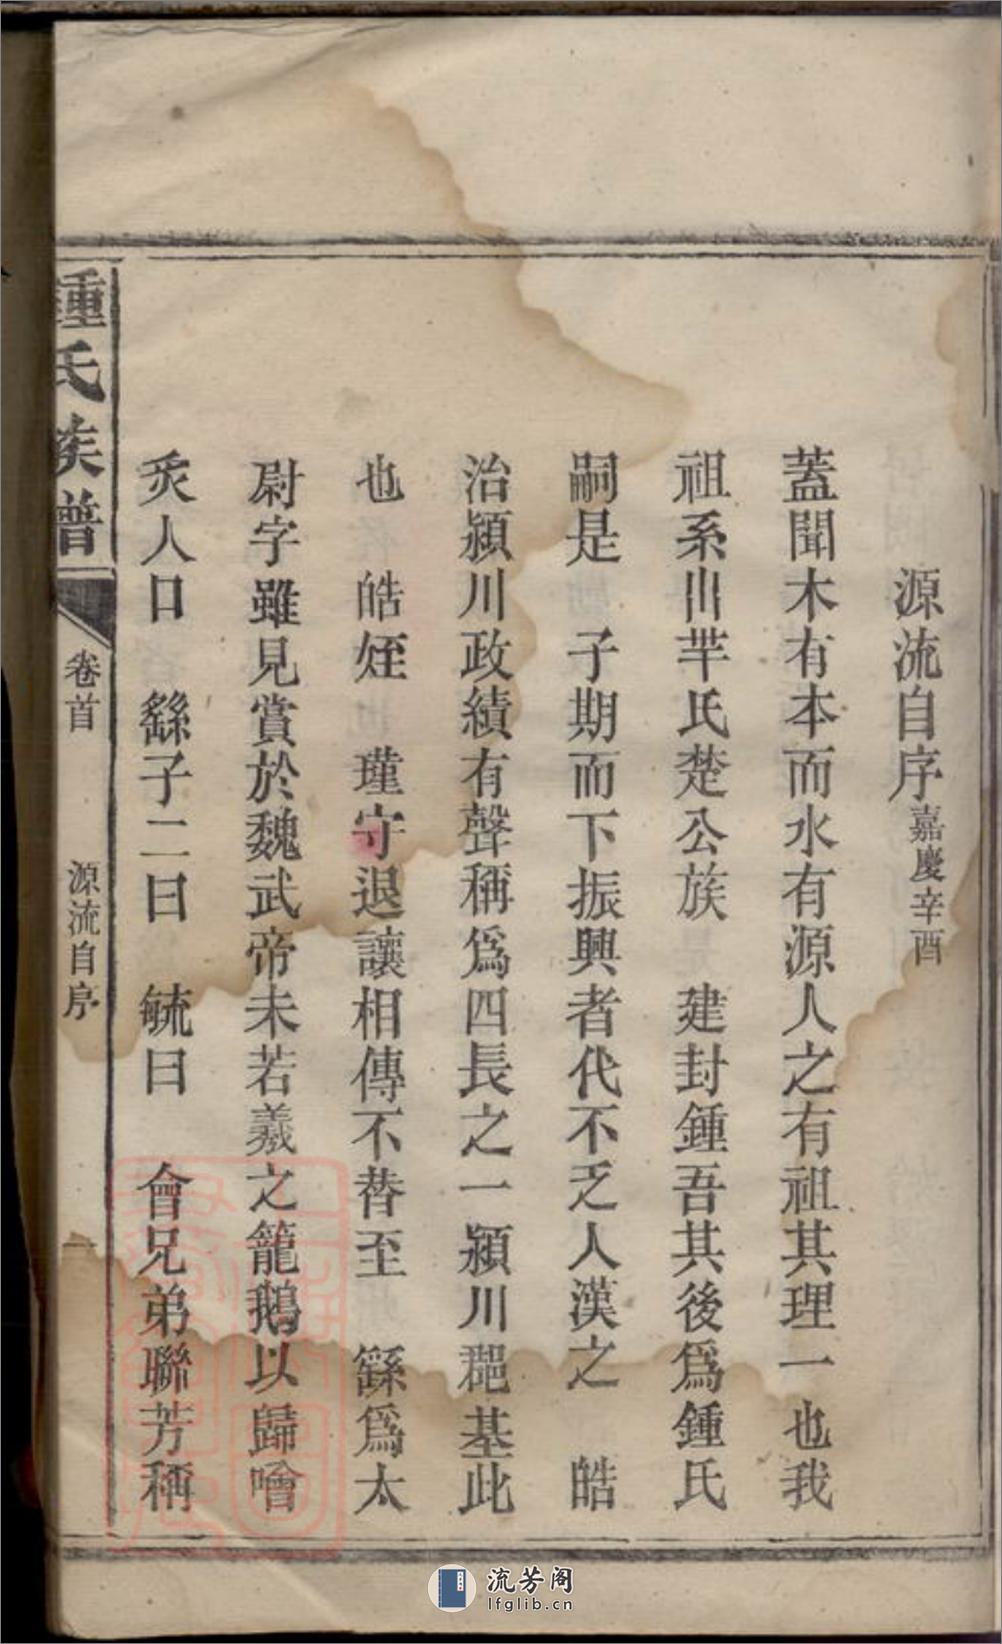 源流自序嘉慶辛酉
蓋聞木有本而水有源人之有祖其理一也我
祖系出芈氏楚公族　建封鍾吾其後爲鍾氏
嗣是　子期而下振興者代不乏人漢之　皓
治潁川政績有聲稱爲四長之一潁川郡基此
也　皓姪　瑾守退讓相傳不替至　繇爲太
尉字雖見賞於魏武帝未若羲之籠鵝以歸噲
炙人口　繇子二曰　毓曰　會兄弟聯芳稱
鍾氏族譜　卷首　源流自序　一
流芳阁
lfglib.cn